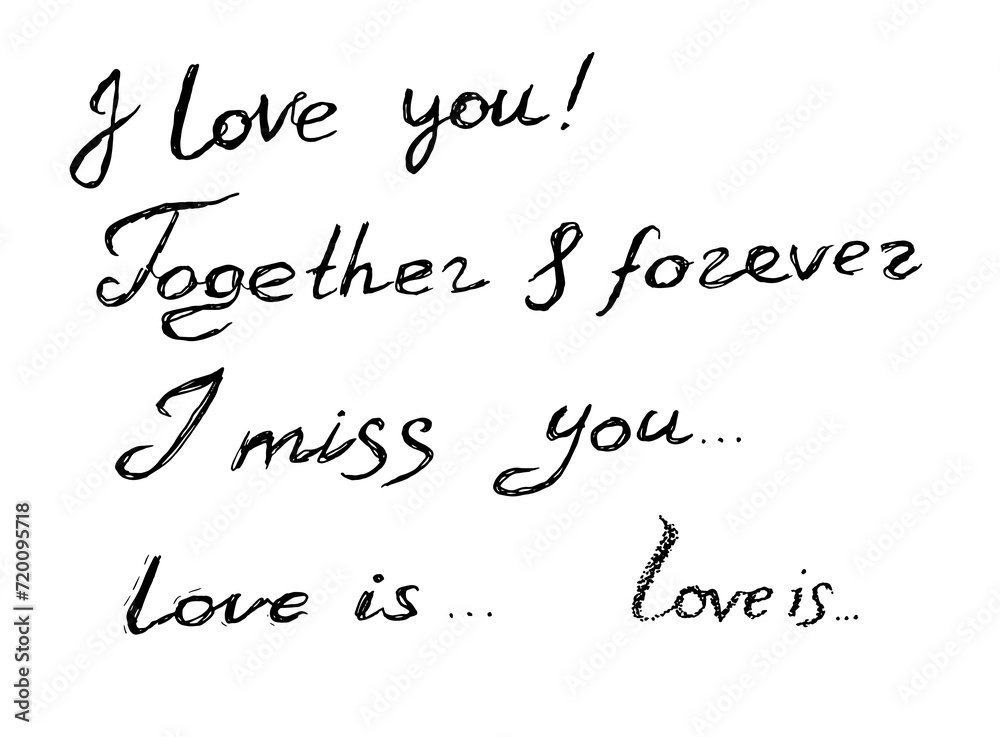 I love you!
Together & forever
I miss you...
Love is...
Love is...
Adobe Stock | #720095718